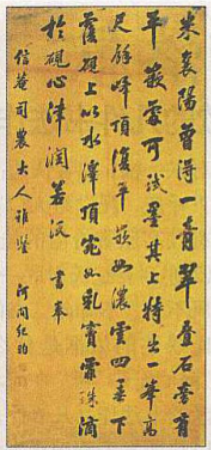 米襄陽曾得一青翠疊石旁有
平嵌處可試墨其上特出一峯高
尺餘峰頂復平嵌如濃雲四垂下
覆硯上以水滓頂宛如乳竇霏珠滴
於硯心津潤若流 書奉
信菴司農大人雅鑒 河間紀昀